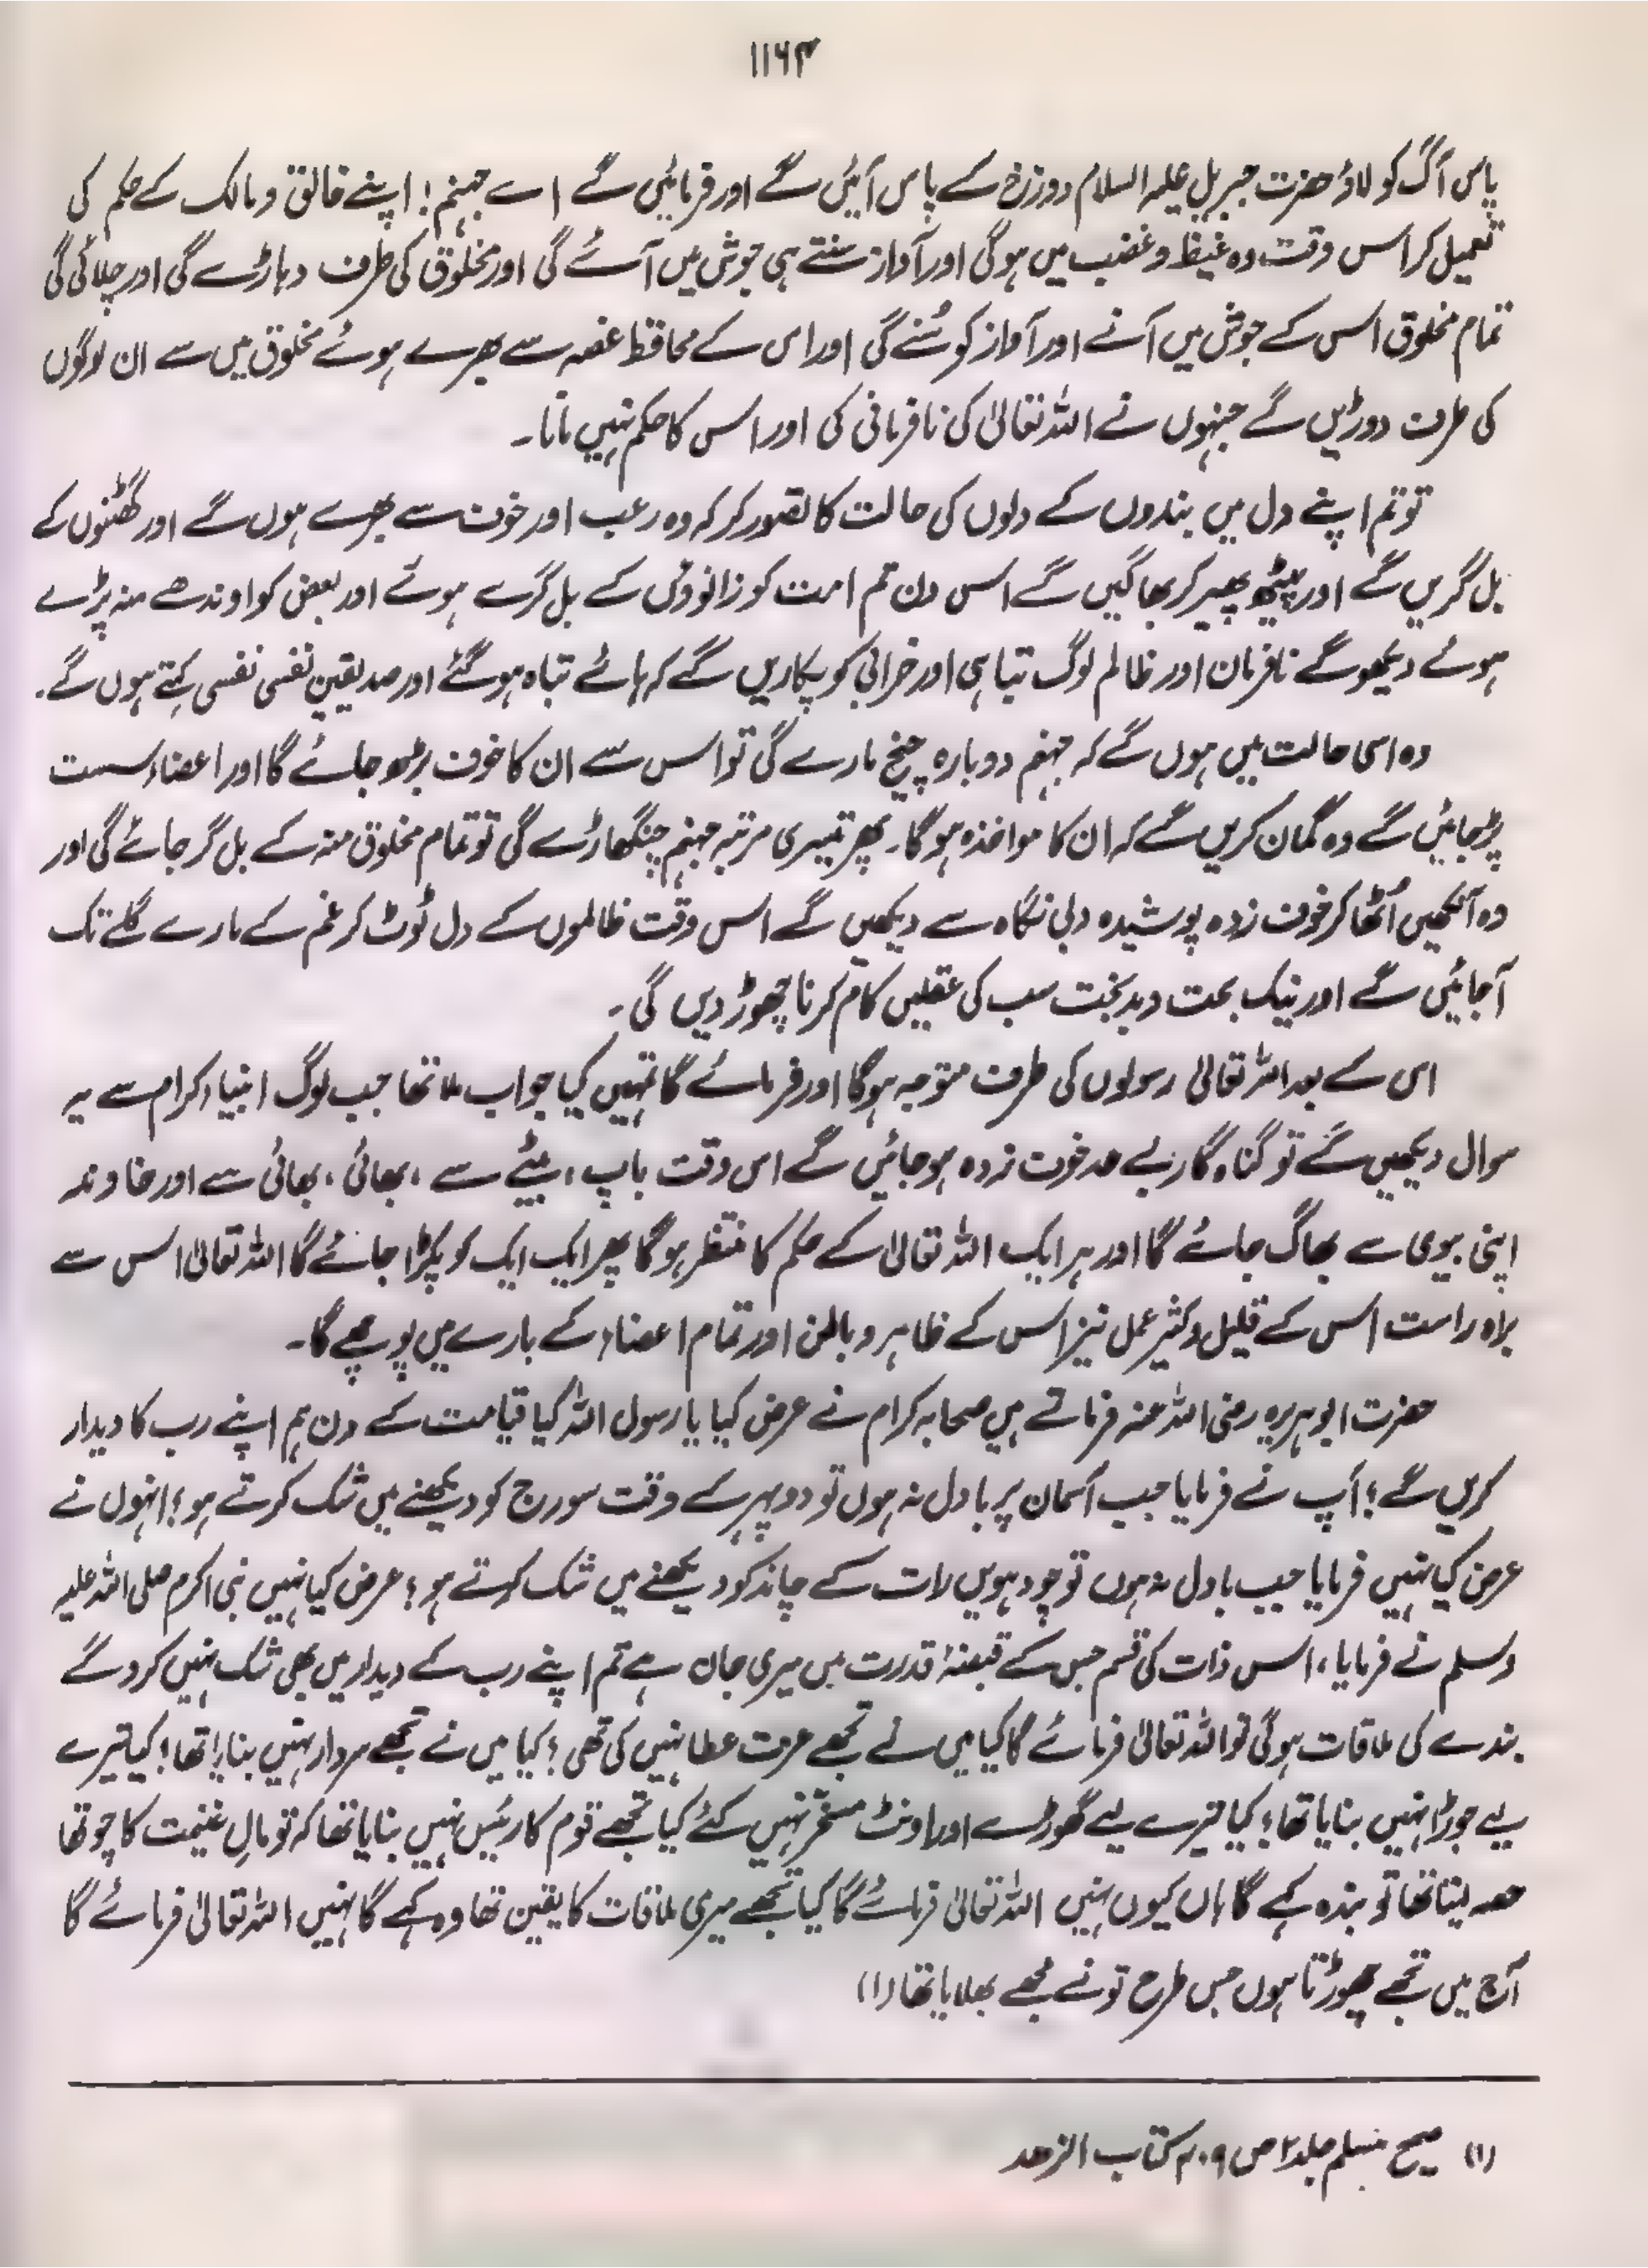 ۱۱۶۴
پاس آگ کو لاؤ حضرت جبریل علیہ السلام دوزخ کے پاس آئیں گے اور فرمائیں گے اے جہنم! اپنے خالق و مالک کے حکم کی
تعمیل کر اس وقت وہ غیظ و غضب میں ہوگی اور آواز سنتے ہی جوش میں آئے گی اور مخلوق کی طرف دہاڑے گی اور چلائی گی
تمام مخلوق اس کے جوش میں آنے اور آواز کو سُنے گی اور اس کے محافظ غصہ سے بھرے ہوئے مخلوق میں سے ان لوگوں
کی طرف دوڑیں گے جنہوں نے اللہ تعالیٰ کی نافرمانی کی اور اس کا حکم نہیں مانا۔
تو تم اپنے دل میں بندوں کے دلوں کی حالت کا تصور کر کہ وہ رعب اور خوف سے بھرے ہوں گے اور گھٹنوں کے
بل گریں گے اور پیٹھ پھیر کر بھاگیں گے اس دن تم امت کو زانوؤں کے بل گرے ہوئے اور بعض کو اوندھے منہ پڑے
ہوئے دیکھو گے نافرمان اور ظالم لوگ تباہی اور خرابی کو پکاریں گے کہ ہائے تباہ ہو گئے اور صدیقین نفسی نفسی کہتے ہوں گے۔
وہ اسی حالت میں ہوں گے کہ جہنم دوبارہ چیخ مارے گی تو اس سے ان کا خوف بڑھ جائے گا اور اعضاء سست
پڑجائیں گے وہ گمان کریں گے کہ ان کا مواخذہ ہوگا۔ پھر تیسری مرتبہ جہنم چنگھاڑے گی تو تمام مخلوق منہ کے بل گر جائے گی اور
وہ آنکھیں اُٹھا کر خوف زدہ پوشیدہ دبی نگاہ سے دیکھیں گے اس وقت ظالموں کے دل ٹوٹ کر غم کے مارے گلے تک
آجائیں گے اور نیک بخت و بدبخت سب کی عقلیں کام کرنا چھوڑ دیں گی۔
اس کے بعد اللہ تعالیٰ رسولوں کی طرف متوجہ ہوگا اور فرمائے گا تمہیں کیا جواب ملا تھا جب لوگ انبیاء کرام سے یہ
سوال دیکھیں گے تو گناہ گار بے حد خوف زدہ ہو جائیں گے اس وقت باپ، بیٹے سے، بھائی، بھائی سے اور خاوند
اپنی بیوی سے بھاگ جائے گا اور ہر ایک اللہ تعالیٰ کے حکم کا منتظر ہوگا پھر ایک ایک کو پکڑا جائے گا اللہ تعالیٰ اس سے
براہ راست اس کے قلیل و کثیر عمل نیز اس کے ظاہر و باطن اور تمام اعضاء کے بارے میں پوچھے گا۔
حضرت ابوہریرہ رضی اللہ عنہ فرماتے ہیں صحابہ کرام نے عرض کیا یا رسول اللہ کیا قیامت کے دن ہم اپنے رب کا دیدار
کریں گے؟ آپ نے فرمایا جب آسمان پر بادل نہ ہوں تو دوپہر کے وقت سورج کو دیکھنے میں شک کرتے ہو؟ انہوں نے
عرض کیا نہیں فرمایا جب بادل نہ ہوں تو چودہویں رات کے چاند کو دیکھنے میں شک کرتے ہو؟ عرض کیا نہیں نبی اکرم صلی اللہ علیہ
وسلم نے فرمایا، اس ذات کی قسم جس کے قبضۂ قدرت میں میری جان ہے تم اپنے رب کے دیدار میں بھی شک نہیں کرو گے
بندے کی ملاقات ہوگی تو اللہ تعالیٰ فرمائے گا کیا میں نے تجھے عزت عطا نہیں کی تھی؟ کیا میں نے تجھے سردار نہیں بنایا تھا؟ کیا تیرے
لیے جوڑا نہیں بنایا تھا؟ کیا تیرے لیے گھوڑے اور اونٹ مسخر نہیں کئے کیا تجھے قوم کا رئیس نہیں بنایا تھا کہ تو مالِ غنیمت کا چوتھا
حصہ لیتا تھا تو بندہ کہے گا ہاں کیوں نہیں اللہ تعالیٰ فرمائے گا کیا تجھے میری ملاقات کا یقین تھا وہ کہے گا نہیں اللہ تعالیٰ فرمائے گا
آج میں تجھے چھوڑتا ہوں جس طرح تونے مجھے بھلایا تھا (۱)
(۱) صحیح مسلم جلد ۲ ص ۴۰۹ کتاب الزھد